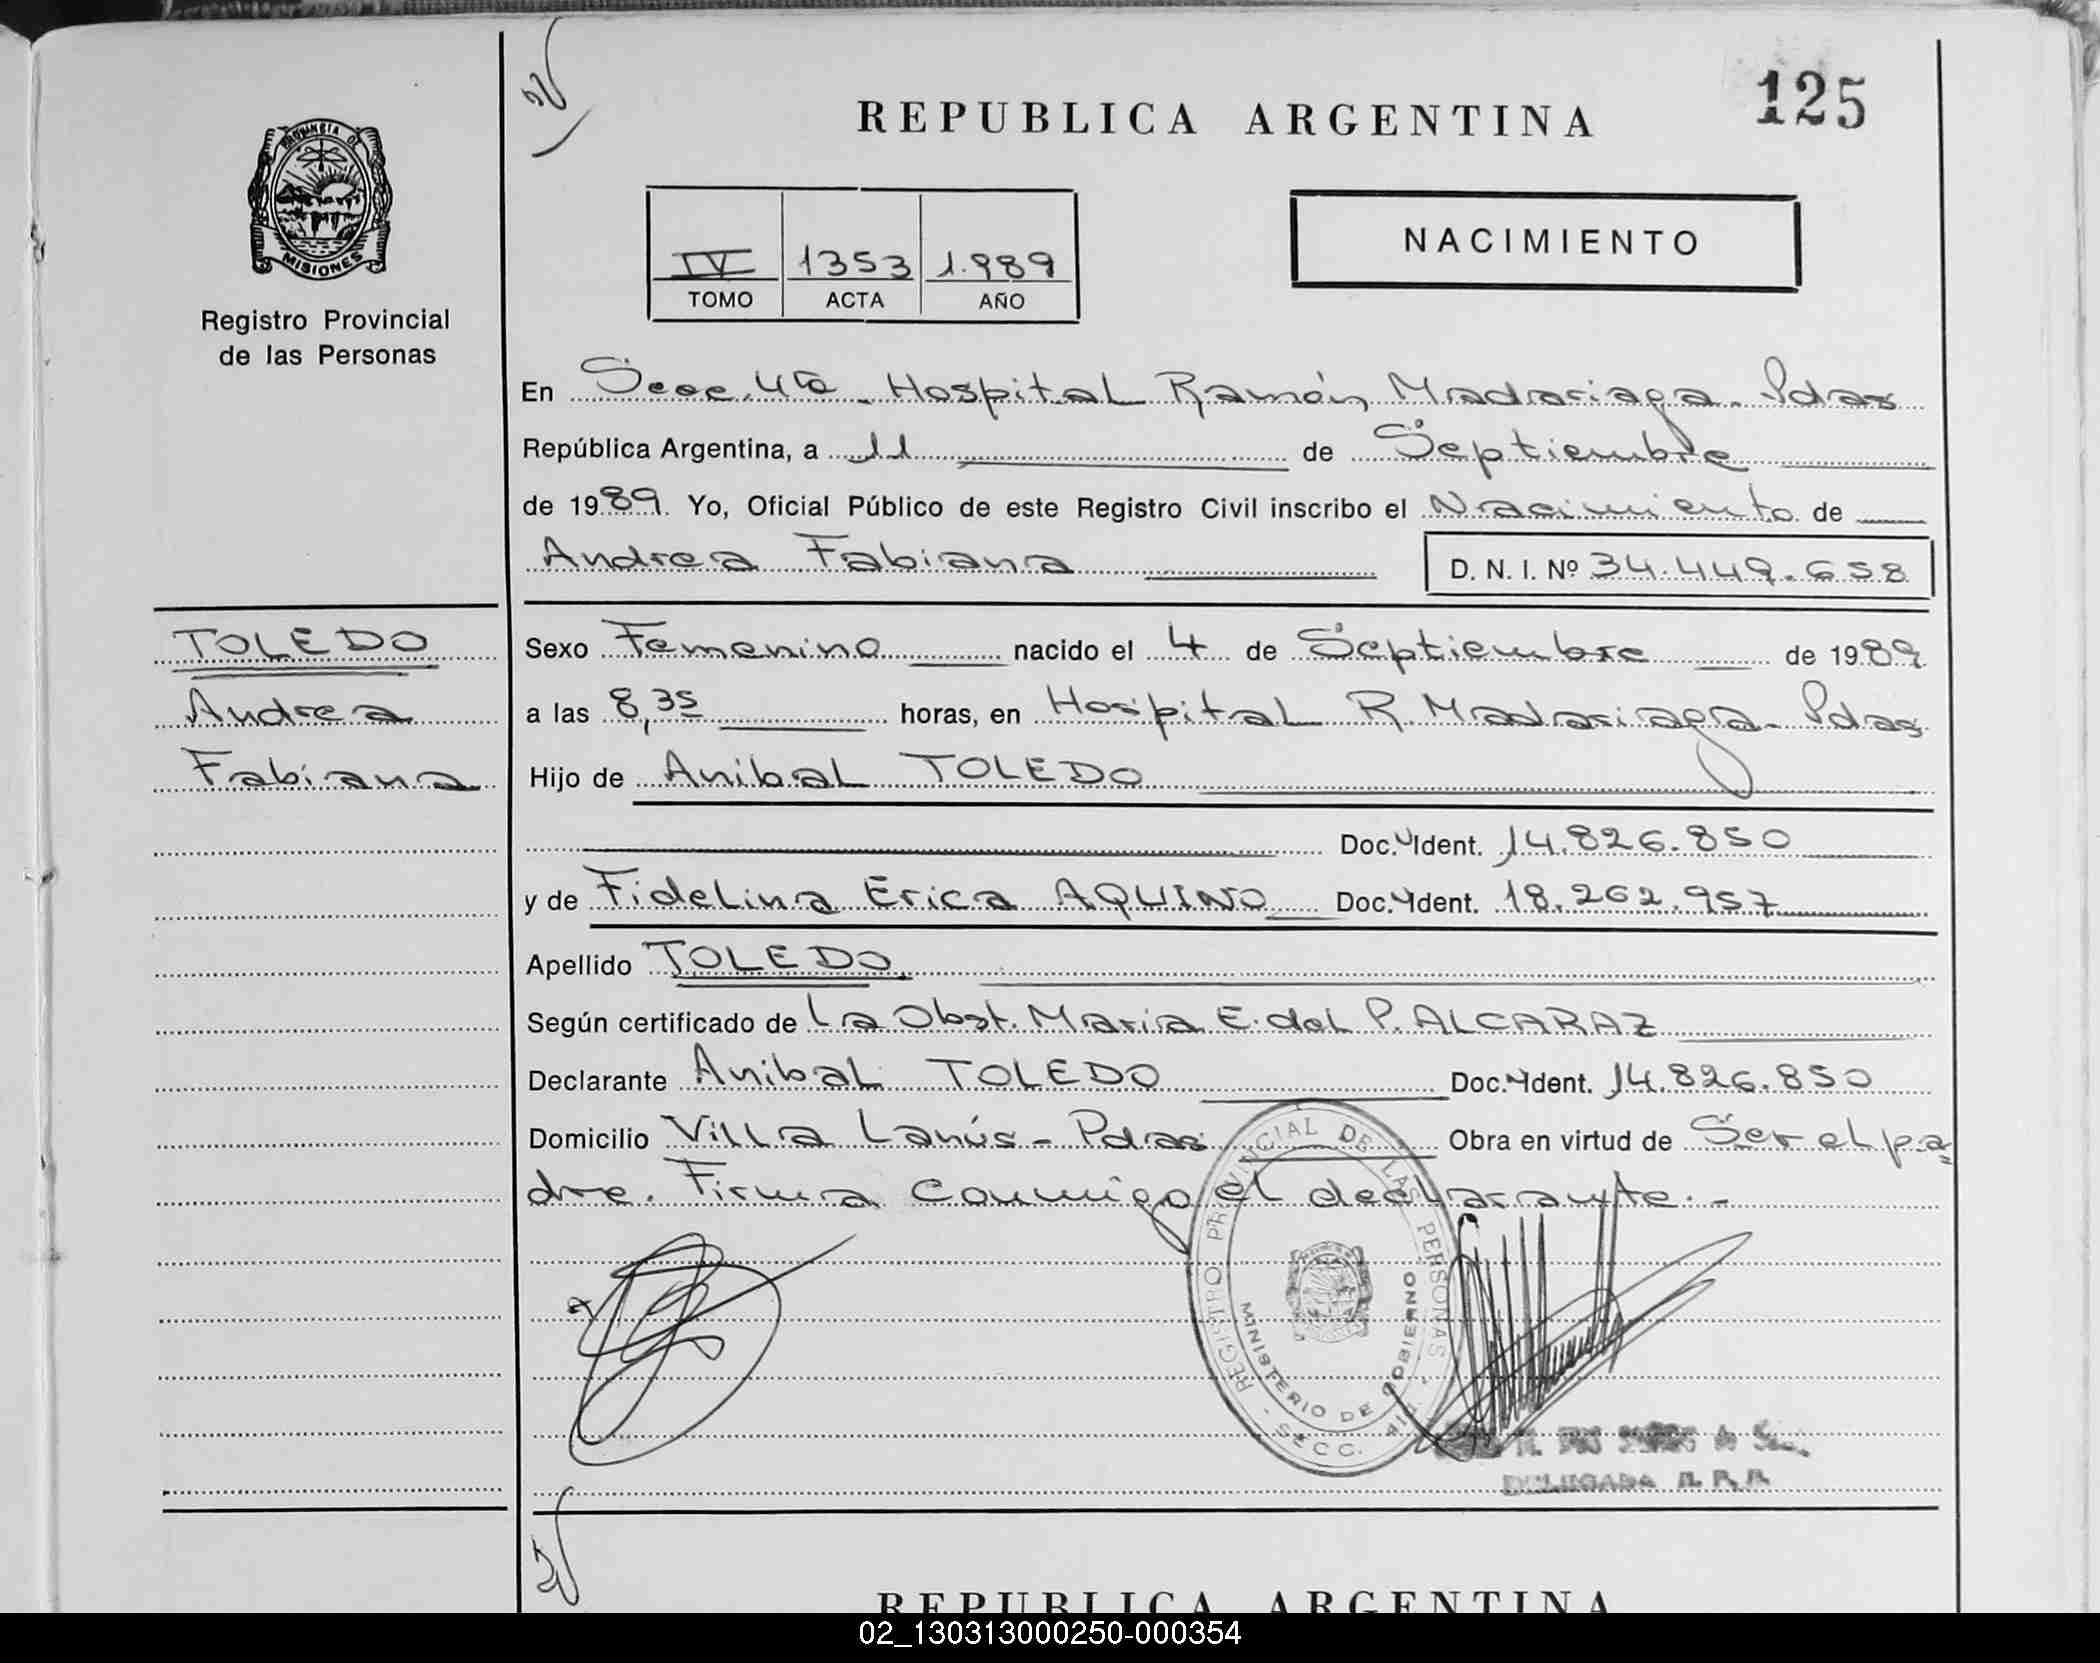 125
REPUBLICA ARGENTINA
PROVINCIA DE
MISIONES
Registro Provincial
de las Personas
NACIMIENTO
IV 1353 1.989
TOMO ACTA AÑO
En Secc. 4ta. Hospital Ramón Madariaga. Pdas
República Argentina, a 11 de Septiembre
de 1989. Yo, Oficial Público de este Registro Civil inscribo el Nacimiento de
Andrea Fabiana D. N. I. Nº 34.449.658
TOLEDO
Andrea
Fabiana
Sexo Femenino nacido el 4 de Septiembre de 1989
a las 8,35 horas, en Hospital R. Madariaga - Pdas.
Hijo de Anibal TOLEDO
Doc. Ident. 14.826.850
y de Fidelina Erica AQUINO Doc. Ident. 18.262.957
Apellido TOLEDO
Según certificado de La Obst. Maria E. del P. ALCARAZ
Declarante Anibal TOLEDO Doc. Ident. 14.826.850
Domicilio Villa Lanús - Pdas Obra en virtud de Ser el pa=
dre. Firma conmigo el declarante. -
REGISTRO PROVINCIAL DE LAS PERSONAS
MINISTERIO DE GOBIERNO
SECC.
DELEGADA R. P. P.
REPUBLICA ARGENTINA
02_130313000250-000354